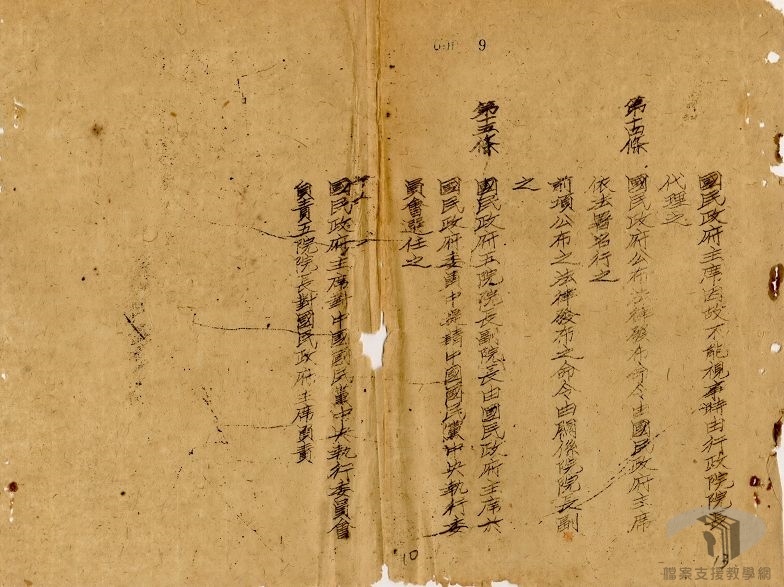 9
國民政府主席因故不能視事時由行政院院長
代理之
第十四條 國民政府公布法律發布命令由國民政府主席
依法署名行之
前項公布之法律發布之命令由關係院院長副
之
第十五條 國民政府五院院長副院長由國民政府主席於
國民政府委員中提請中國國民黨中央執行委
員會選任之
國民政府主席對中國國民黨中央執行委員會
負責五院院長對國民政府主席負責
13
10
檔案支援教學網